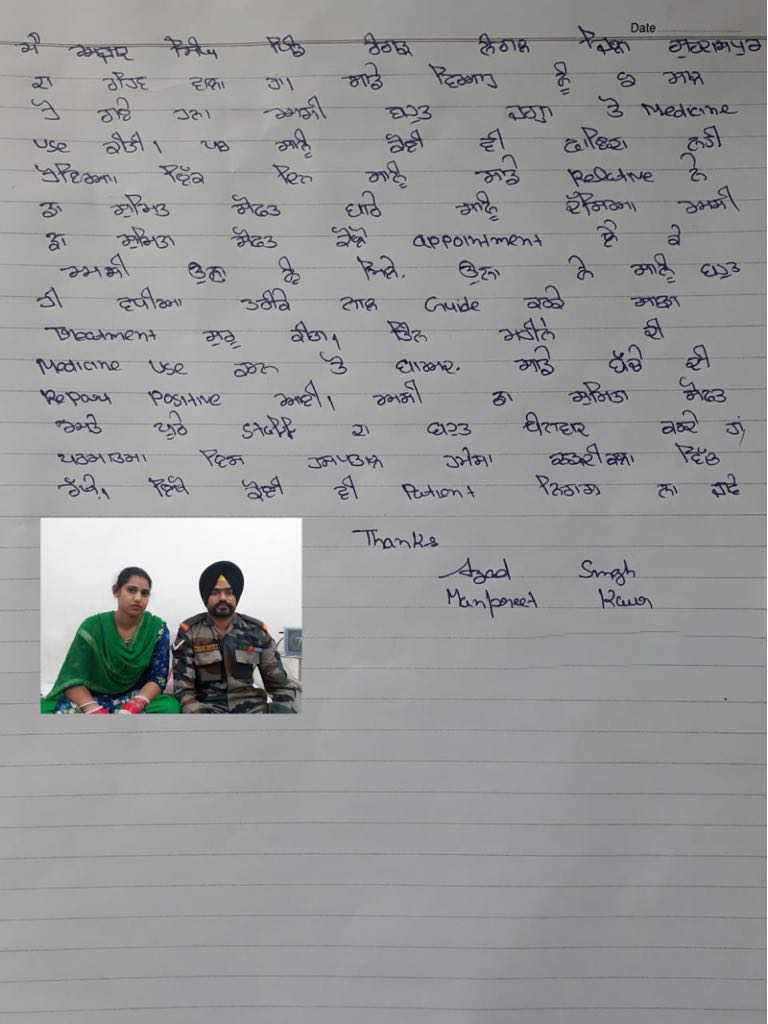 Date
ਮੈ ਅਜ਼ਾਦ ਸਿੰਘ ਪਿੰਡ ਰੰਗੜ ਨੰਗਲ ਜ਼ਿਲਾ ਗੁਰਦਾਸਪੁਰ
ਦਾ ਰਹਿਣ ਵਾਲਾ ਹਾਂ। ਸਾਡੇ ਵਿਆਹ ਨੂੰ 6 ਸਾਲ
ਹੋ ਗਏ ਹਨ। ਅਸੀ ਬਹੁਤ ਜਗ੍ਹਾ ਤੋ Medicine
use ਕੀਤੀ। ਪਰ ਸਾਨੂੰ ਕੋਈ ਵੀ ਫਾਇਦਾ ਨਹੀ
ਹੋਇਆ। ਇੱਕ ਦਿਨ ਸਾਨੂੰ ਸਾਡੇ Relative ਨੇ
ਡਾ ਸੁਮਿਤਾ ਸੋਫਤ ਬਾਰੇ ਸਾਨੂੰ ਦੱਸਿਆ ਅਸੀ
ਡਾ ਸੁਮਿਤਾ ਸੋਫਤ ਕੋਲੋ appointment ਲੈ ਕੇ
ਅਸੀ ਉਨਾ ਨੂੰ ਮਿਲੇ. ਉਨਾ ਨੇ ਸਾਨੂੰ ਬਹੁਤ
ਹੀ ਵਧੀਆ ਤਰੀਕੇ ਨਾਲ Guide ਕਰਕੇ ਸਾਡਾ
Treatment ਸ਼ੁਰੂ ਕੀਤਾ। ਤਿੰਨ ਮਹੀਨੇ ਦੀ
Medicine use ਕਰਨ ਤੋ ਬਾਅਦ. ਸਾਡੇ ਬੱਚੇ ਦੀ
Report Positive ਆਈ। ਅਸੀ ਡਾ ਸੁਮਿਤਾ ਸੋਫਤ
ਅਤੇ ਪੂਰੇ staff ਦਾ ਬਹੁਤ ਧੰਨਵਾਦ ਕਰਦੇ ਹਾਂ
ਪਰਮਾਤਮਾ ਇਸ ਹਸਪਤਾਲ ਹਮੇਸਾ ਚੜਦੀਕਲਾ ਵਿੱਚ
ਰੱਖੇ, ਇੱਥੇ ਕੋਈ ਵੀ Patient ਨਿਰਾਸ਼ ਨਾ ਜਾਵੇ
Thanks
Azad Singh
Manpreet Kaur